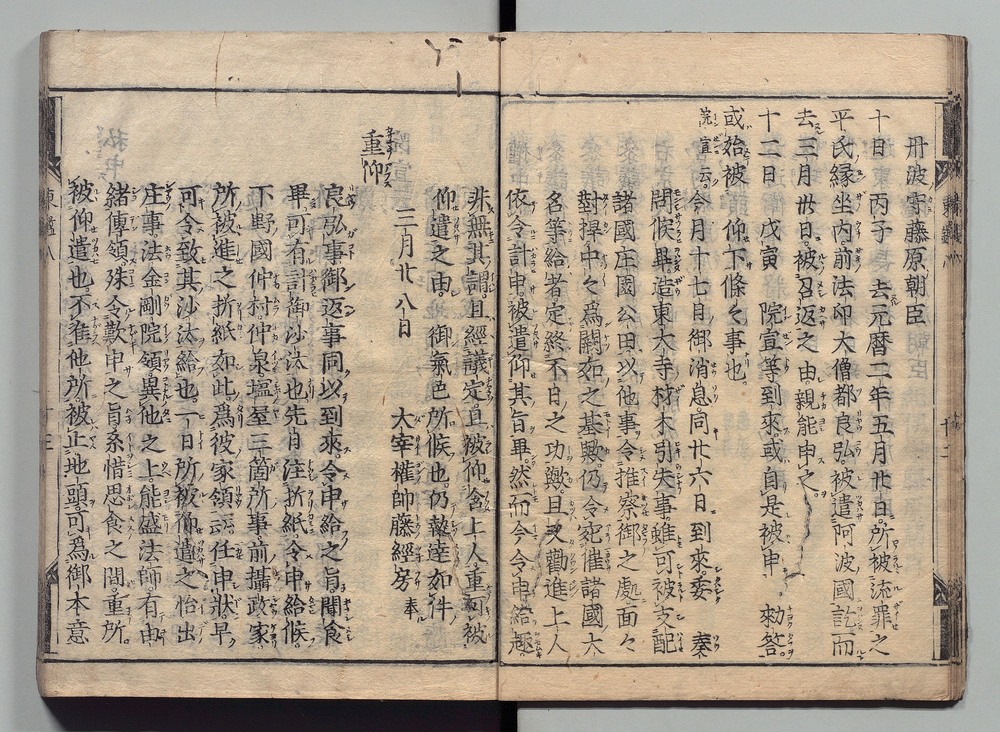 丹波守藤原朝臣
十日　丙子　去元暦二年五月廿日。所被流罪之
平氏縁坐内。前法印大僧都良弘被遣阿波國訖。而
去三月廿日。被召返之由。親能申之。
十二日　戊寅　院宣等到來。或自是被申。勅答。
或始被仰下條々事也。
院宣云。今月十七日御消息。同廿六日到來。委奏
問候畢。造東大寺材木引失事。雖可被支配
諸國庄園公田。以他事令推察御之處。面々
對捍中々爲闕如之基歟。仍令宛催諸國大
名等給者。定終不日之功歟。且又勸進上人
依令計申。被遣仰其旨畢。然而今令申給趣
非無其謂。且經議定。且被仰含上人。重可被
仰遣之由。御氣色所候也。仍執達如件
三月廿八日　大宰權帥藤經房奉
重仰
良弘事。御返事同以到來。令申給之旨。聞食
畢。可有計御沙汰也。先日注折紙令申給候。
下野國仲村仲泉塩屋三箇所事。前攝政家
所被進之折紙如此。爲彼家領云。任申狀。早
可令致其沙汰給也。一日所被仰遣之怡出
庄事。法金剛院領異他之上。能盛法師。有由
緒傳領。殊令歎申之旨。系惜思食之間。重所
被仰遣也。不准他所。被止地頭。可爲御本意
東鑑八
十二
十三